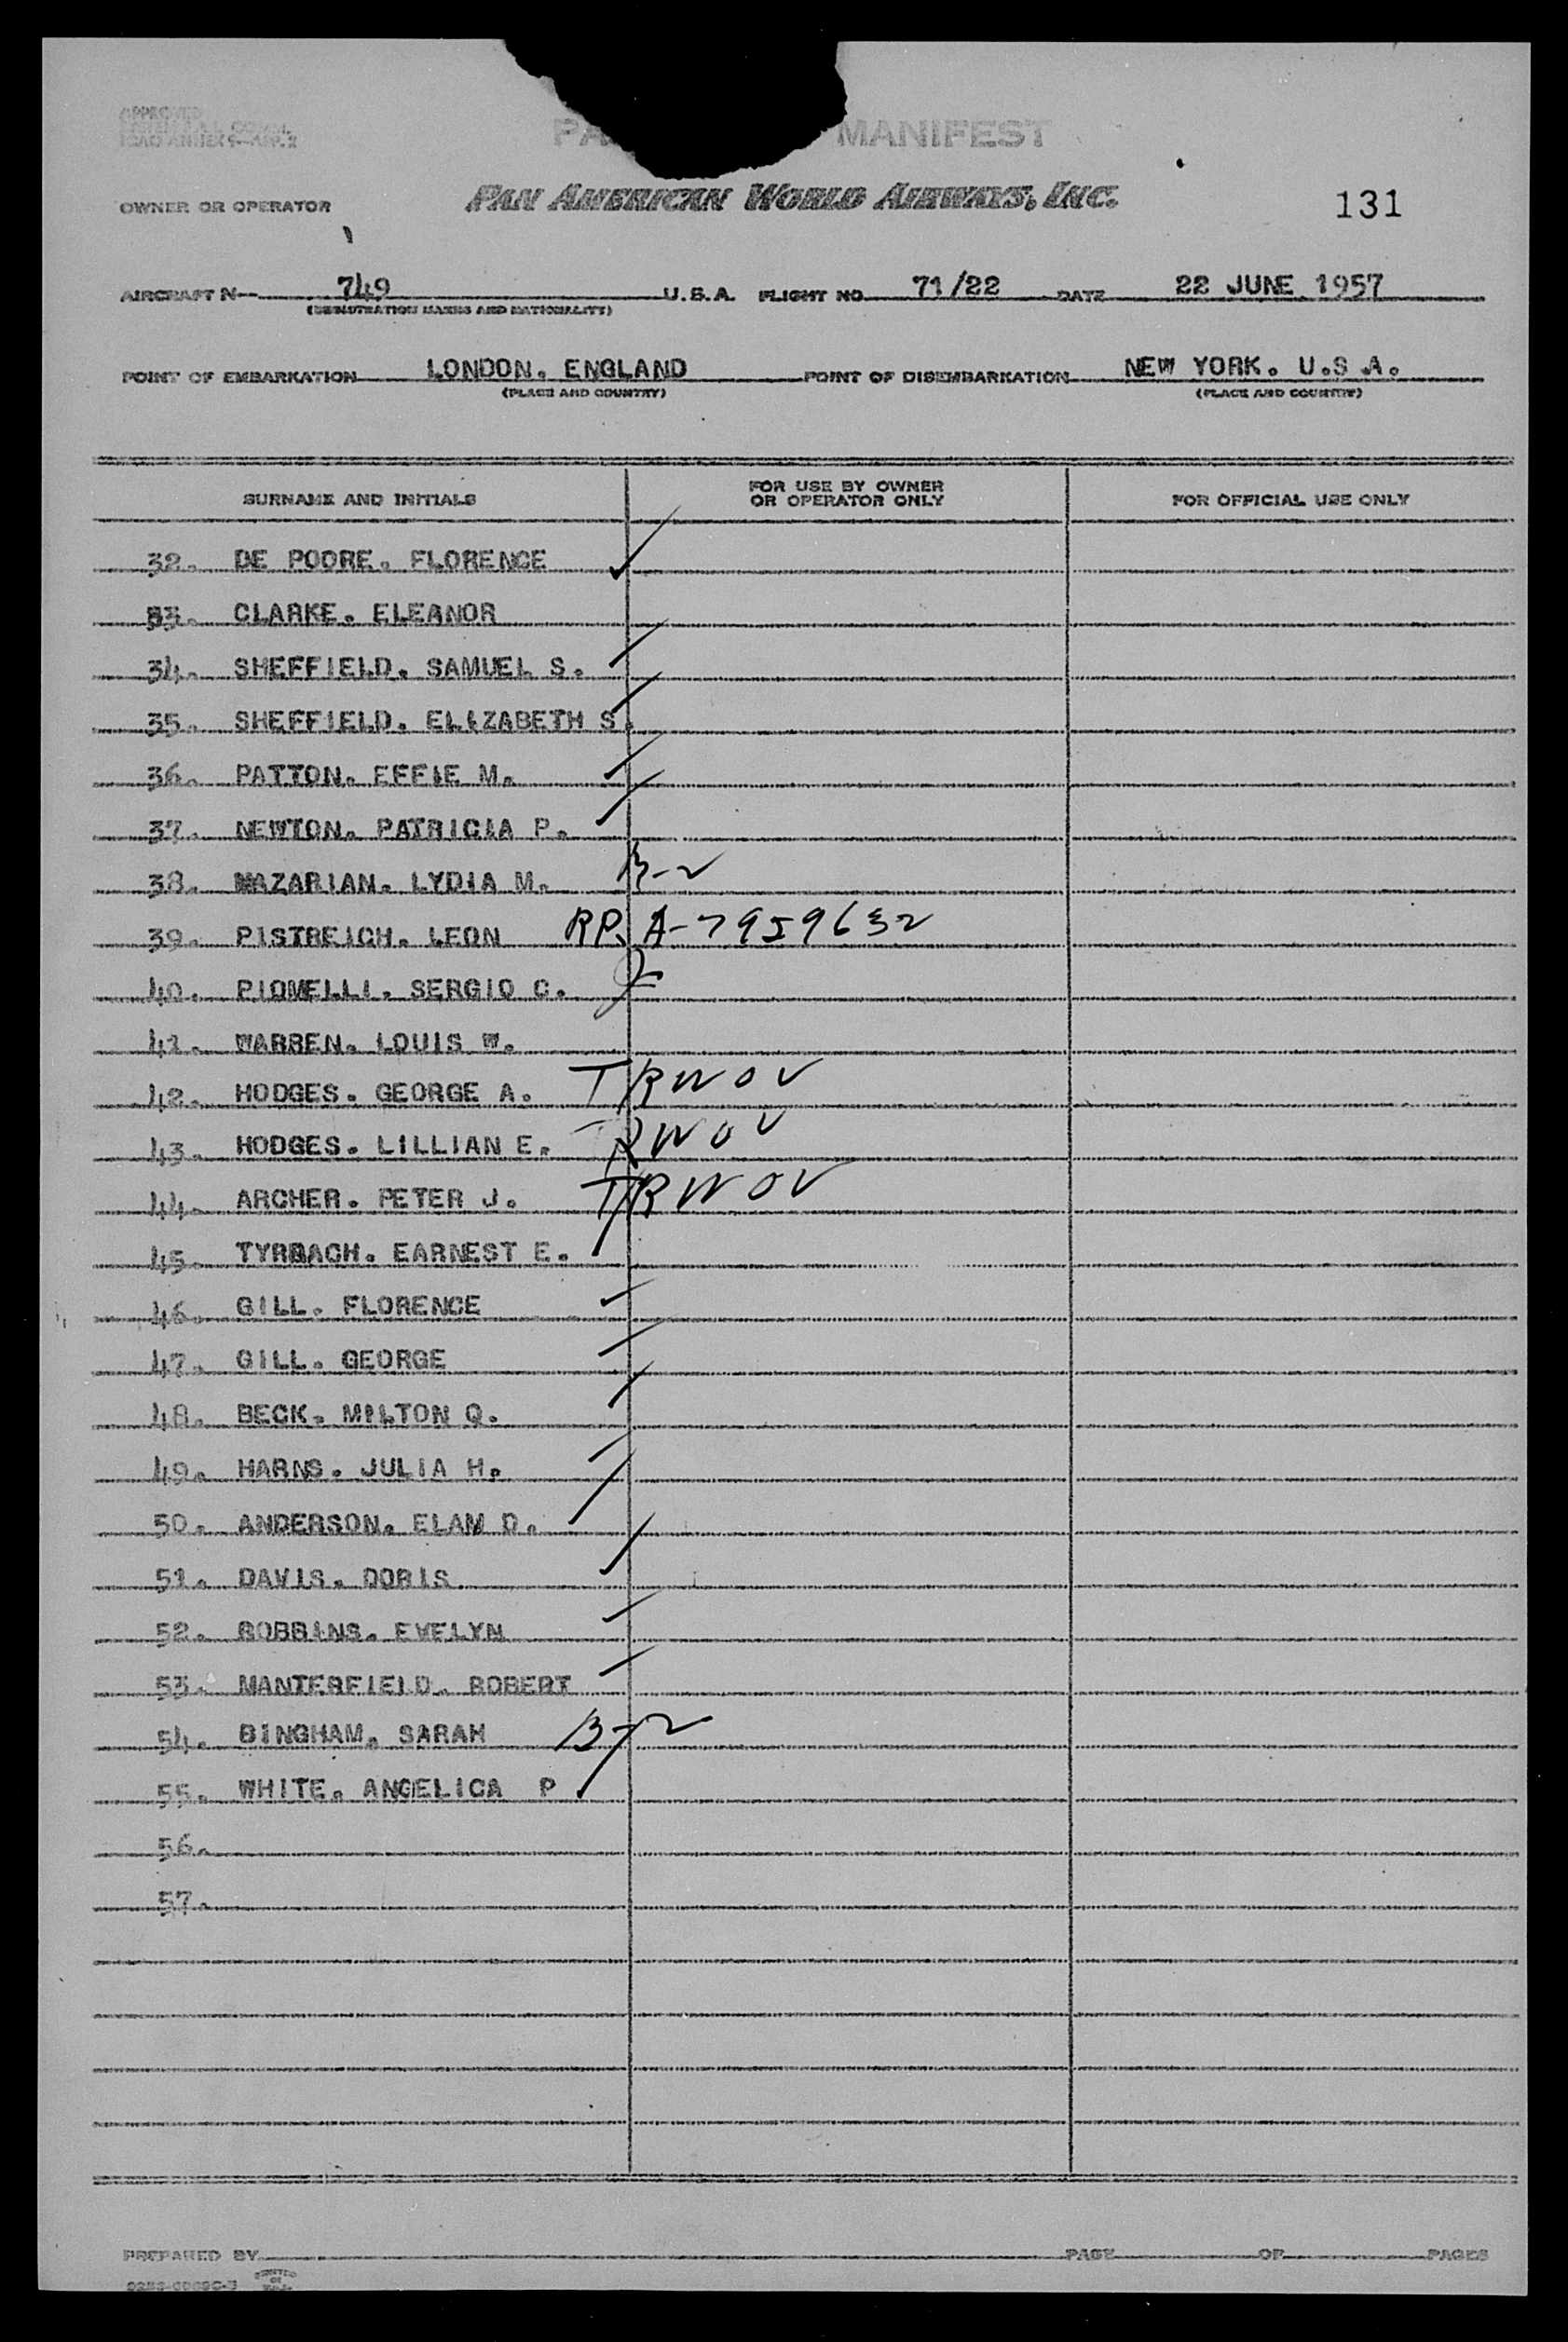 APPROVED
MANIFEST
OWNER OR OPERATOR PAN AMERICAN WORLD AIRWAYS, INC. 131
AIRCRAFT N— 749 U.S.A. FLIGHT NO. 71/22 DATE 22 JUNE 1957
POINT OF EMBARKATION LONDON. ENGLAND POINT OF DISEMBARKATION NEW YORK. U.S.A.
(PLACE AND COUNTRY) (PLACE AND COUNTRY)
SURNAME AND INITIALS FOR USE BY OWNER OR OPERATOR ONLY FOR OFFICIAL USE ONLY
32. DE POORE. FLORENCE
33. CLARKE. ELEANOR
34. SHEFFIELD. SAMUEL S.
35. SHEFFIELD. ELIZABETH S.
36. PATTON. EFFIE M.
37. NEWTON. PATRICIA P.
38. NAZARIAN. LYDIA M. B-2
39. PISTREICH. LEON RP. A-7959632
40. PIOMELLI. SERGIO C.
41. WARREN. LOUIS W.
42. HODGES. GEORGE A. TRWOV
43. HODGES. LILLIAN E. TRWOV
44. ARCHER. PETER J. TRWOV
45. TYRBACH. EARNEST E.
46. GILL. FLORENCE
47. GILL. GEORGE
48. BECK. MILTON Q.
49. HARNS. JULIA H.
50. ANDERSON. ELAM D.
51. DAVIS. DORIS
52. ROBBINS. EVELYN
53. MANTERFIELD. ROBERT
54. BINGHAM. SARAH B-2
55. WHITE. ANGELICA P
56.
57.
PREPARED BY PAGE OF PAGES